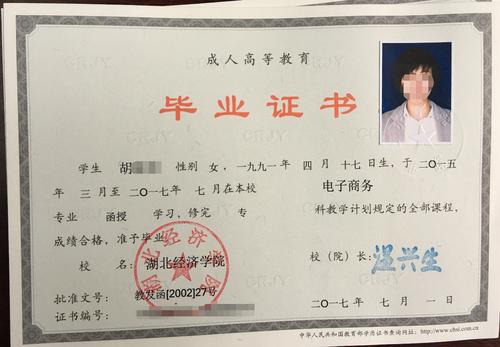 成人高等教育
毕业证书
学生 胡 性别 女，一九九一年 四月 十七日生，于 二〇一五
年 三月至 二〇一七年 七月在本校 电子商务
专业 函授 学习，修完 专 科教学计划规定的全部课程，
成绩合格，准予毕业。
校 名：湖北经济学院 校（院）长：温兴生
湖北经济学院
批准文号：教发函[2002]27号
证书编号： 二〇一七年 七月 一日
中华人民共和国教育部学历证书查询网址：http://www.chsi.com.cn